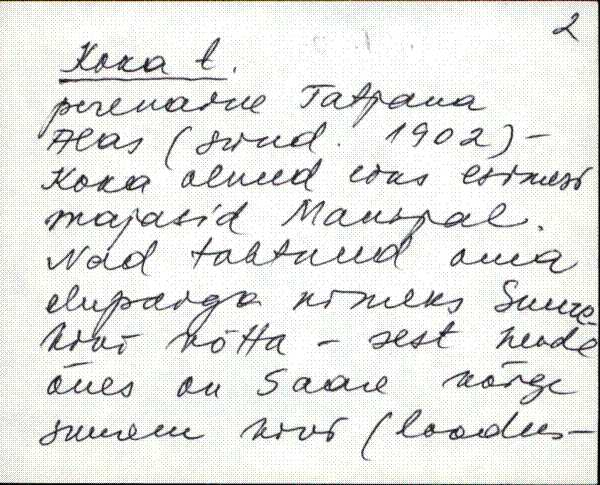 2
Koka t.
perenaine Tatjana
Alas (sünd. 1902) –
Koka olnud üks esimesi
majasid Mannjal.
Nad tahtnud oma
elupaiga nimeks Suure-
kivi võtta – sest nende
õues on Saare kõige
suurem kivi (loodus-